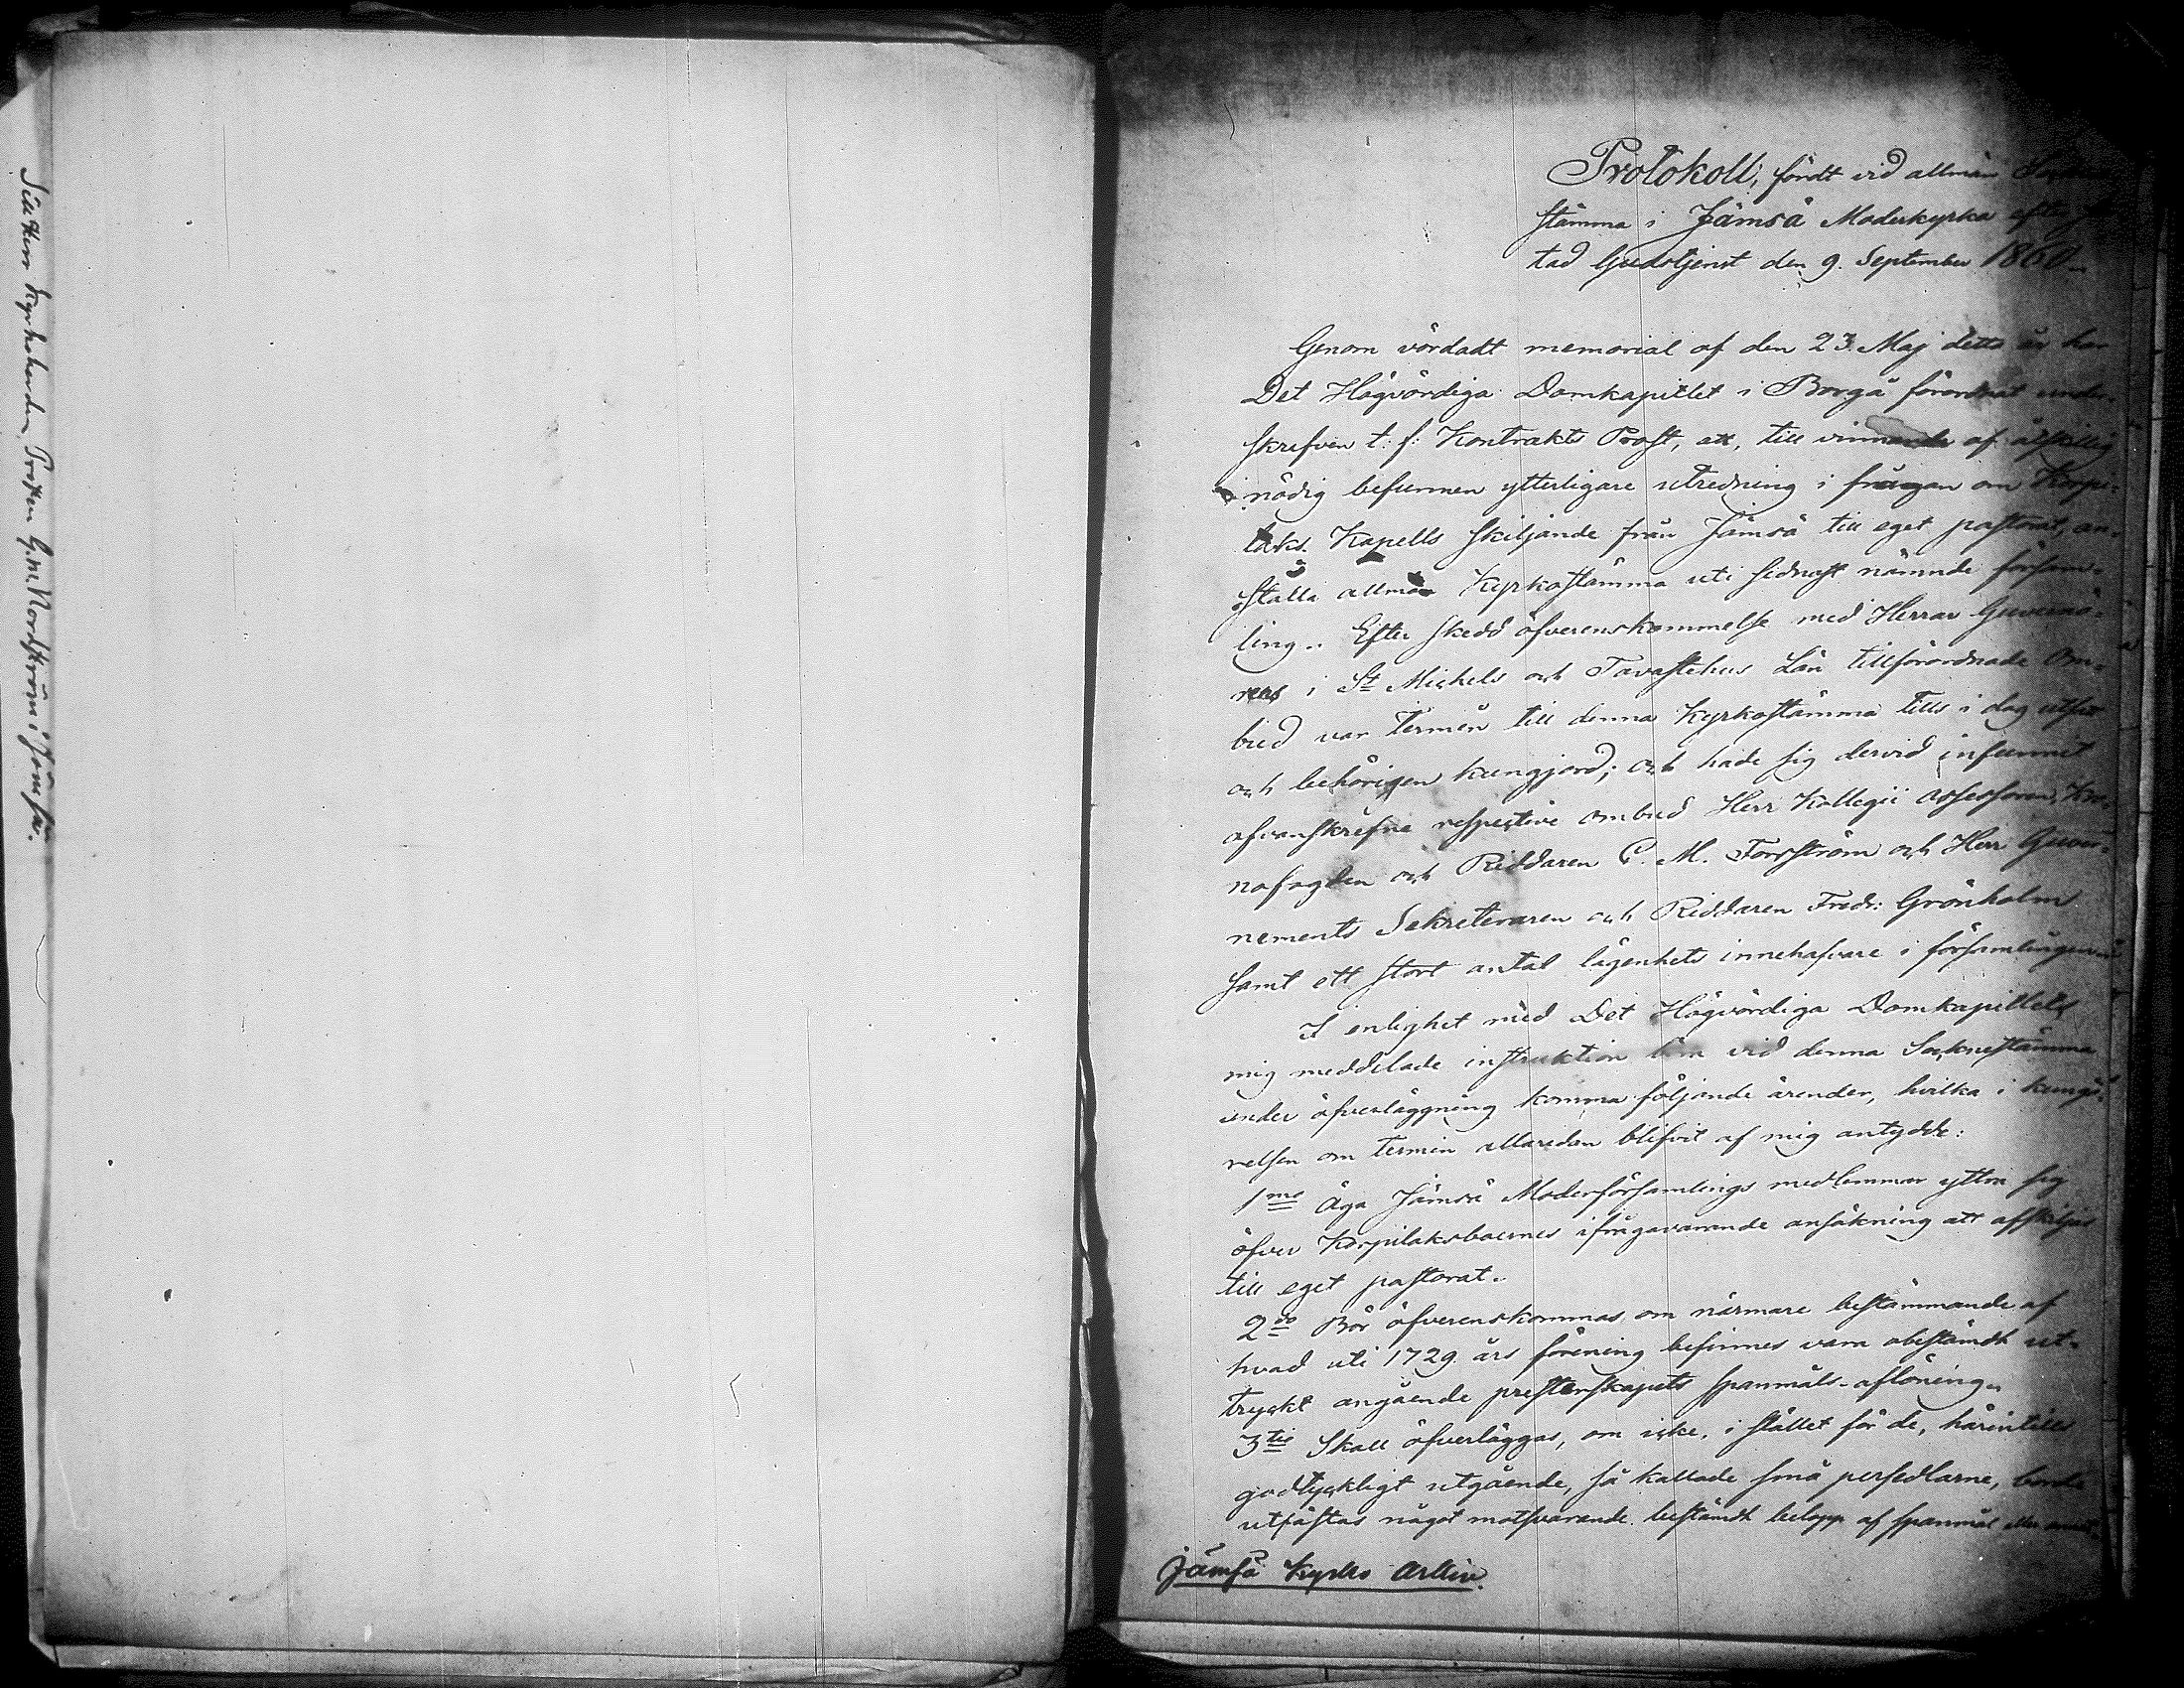 Till Herr Kyrkoherden, Prosten G. M. Nordström i Jämsä.
Protokoll, fördt vid allmän
stämma i Jämsä Moderkyrka efter
tad Gudstjenst den 9. September 1860.
Genom vördadt memorial af den 23. Maj detta år har
Det Högvördiga Domkapitlet i Borgå förordnat under-
skrifven t: f: Kontrakts Prost, att, till vinnande af åtskillig
nödig befunnen ytterligare utredning i frågan om Korpi-
laks Kapells skiljande från Jämsä till eget pastorat, an-
ställa allmän Kyrkostämma uti sednast nämnde försam-
ling. Efter skedd öfverenskommelse med Herrar Guvernö-
rers i St Michels och Tavastehus Län tillförordnade Om-
bud var termin till denna Kyrkostämma tills i dag utsatt
och behörigen kungjord; och hade sig dervid infunnit
ofvanskrefne respective ombud Herr Kollegii Assessoren, Kro-
nofogden och Riddaren C. M. Forsström och Herr Guver-
nements Sekreteraren och Riddaren Fredr: Grönholm
samt ett stort antal lägenhets innehafvare i församlingen.
I enlighet med Det Högvördiga Domkapitlets
mig meddelade instruktion böra vid denna Sockenstämma
under öfverläggning komma följande ärender, hvilka i kungö-
relsen om termin allaredan blifvit af mig antydde:
1mo Äga Jämsä Moderförsamlings medlemmar yttra sig
öfver Korpilaksboernes ifrågavarande ansökning att afskiljas
till eget pastorat.
2do Bör öfverenskommas om närmare bestämmande af
hvad uti 1729 års förening befinnes vara obestämdt ut-
tryckt angående presterskapets spanmåls-aflöning.
3tio Skall öfverläggas, om icke, i stället för de, härintills
godtyckligt utgående, så kallade små persedlarne, borde
utfästas något motsvarande bestämdt belopp af spanmål eller annat
Jämsä Kyrko Arkiv.